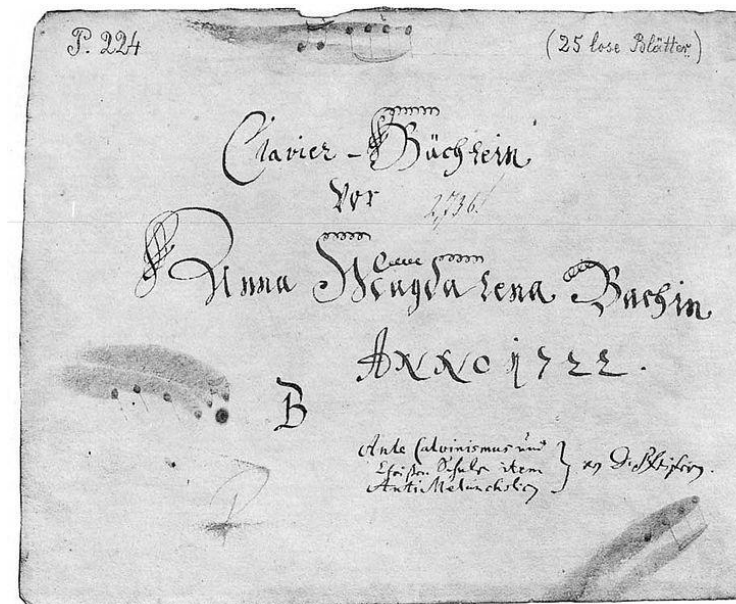 P. 224
(25 lose Blätter)
Clavier-Büchlein
vor
2,736.
Anna Magdalena Bachin
ANNO 1722.
B
Ante Calvinismus und
Schule item
Anti Melancholicy
D. Pfeifern.